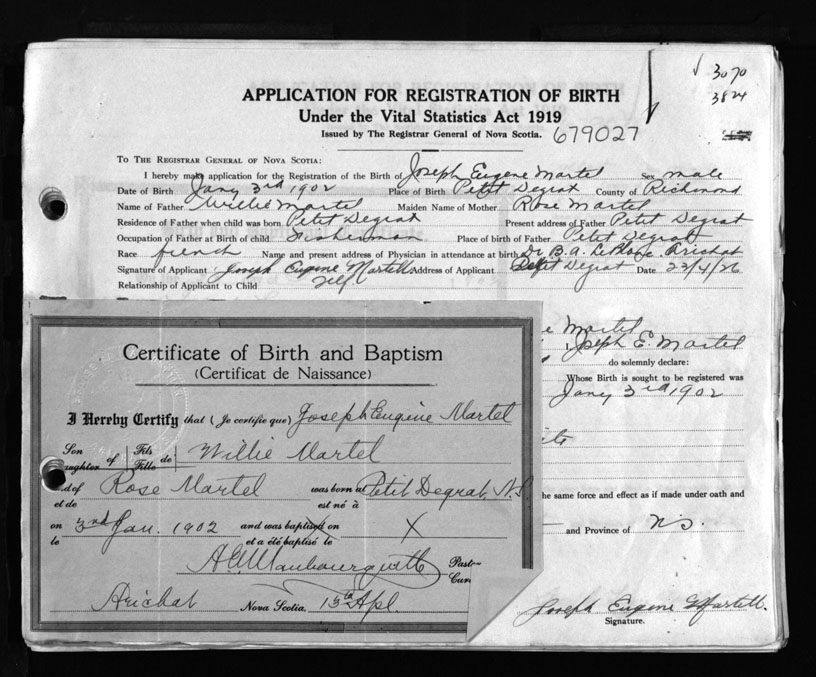 √ 3070
3824
APPLICATION FOR REGISTRATION OF BIRTH
Under the Vital Statistics Act 1919
Issued by The Registrar General of Nova Scotia. 679027
TO THE REGISTRAR GENERAL OF NOVA SCOTIA:
I hereby make application for the Registration of the Birth of Joseph Eugene Martel Sex male
Date of Birth Jany 3rd 1902 Place of Birth Petit Degrat County of Richmond
Name of Father Willie Martel Maiden Name of Mother Rose Martel
Residence of Father when child was born Petit Degrat Present address of Father Petit Degrat
Occupation of Father at Birth of child Fisherman Place of birth of Father Petit Degrat
Race french Name and present address of Physician in attendance at birth Dr B. A. LeBlanc Arichat
Signature of Applicant Joseph Eugene Martell Address of Applicant Petit Degrat Date 23/4/26
Relationship of Applicant to Child Self
Martel
I, Joseph E. Martel
do solemnly declare:
Whose Birth is sought to be registered was
Jany 3rd 1902
the same force and effect as if made under oath and
and Province of N.S.
Joseph Eugene Martell.
Signature.
Certificate of Birth and Baptism
(Certificat de Naissance)
I Hereby Certify that (Je certifie que) Joseph Eugène Martel
Son
aughter of Fils
Fille de Willie Martel
nd of Rose Martel was born at Petit Degrat, N.S.
et de est né à
on 3rd Jan. 1902 and was baptised on X
le et a été baptisé le
Pastor
Curé
Arichat Nova Scotia, 13th Apl.